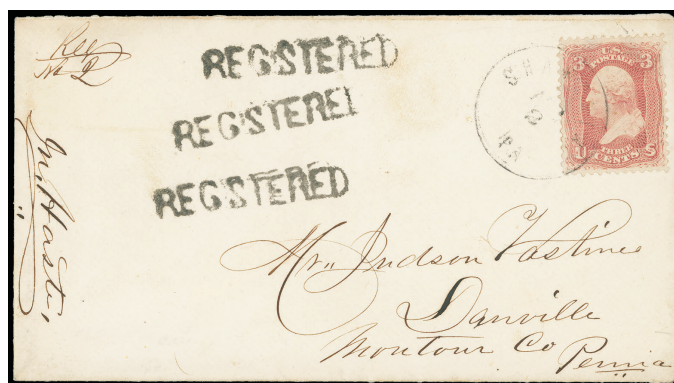 Reg
No 2
REGISTERED
REGISTEREI
REGISTERED
In Haste,
SHA
U.S.
3 3
THREE
U CENTS S
Mr. Judson Vastine
Danville
Montour Co Penna